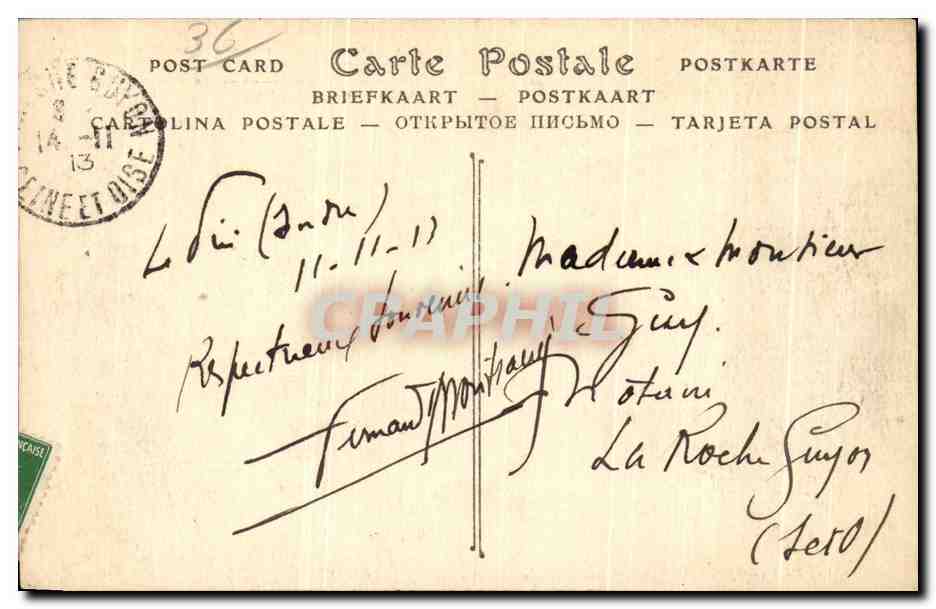 36
POST CARD Carte Postale POSTKARTE
BRIEFKAART — POSTKAART
CARTOLINA POSTALE — ОТКРЫТОЕ ПИСЬМО — TARJETA POSTAL
ROCHE GUYON
14 -11
13
SEINE ET OISE
(Indre)
11-11-13
Respectueux souvenirs.
Fernand
Madame & Monsieur
Guy.
Notaire
La Roche Guyon
(S et O)
CRAPHIL
ÇAISE